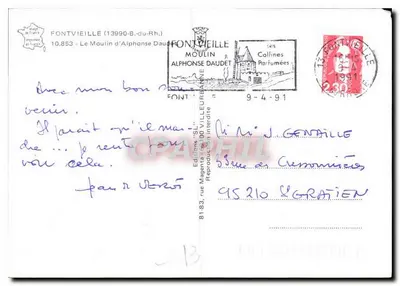 FONTVIEILLE (13990-B.-du-Rh.)
10.853 - Le Moulin d'Alphonse Daudet
FONTVIEILLE
MOULIN
ALPHONSE DAUDET
SES
Collines
Parfumées
9-4-91
13 FONTVIEILLE
1991
2,30
Avec mon bon sou-
venir.
Il parait qu'il
... je
cela.
81-83, rue Magenta - 69100 VILLEURBANNE
Reproduction interdite
J. GENAILLE
des Cressonnières
95210 St GRATIEN
13